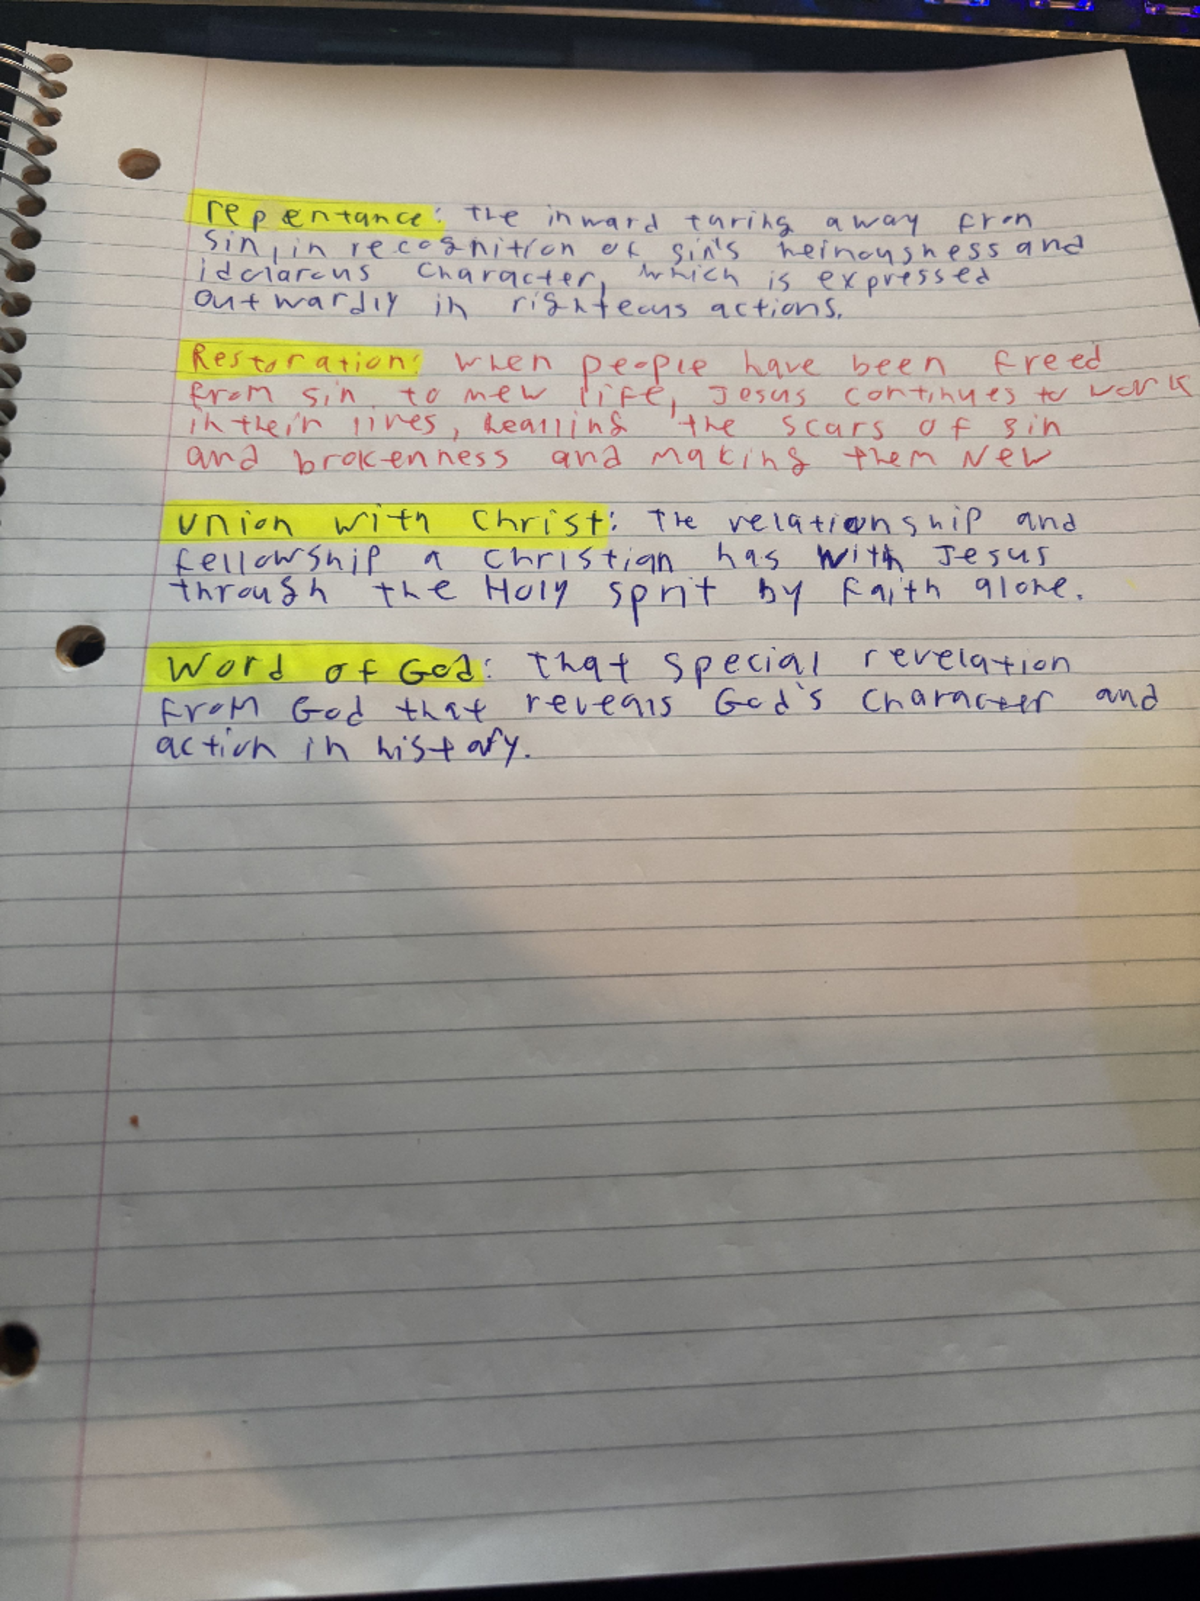 repentance: the inward turing away from
sin, in recognition of sin's heinousness and
idolarous character, which is expressed
outwardly in righteous actions.
Restoration: when people have been freed
from sin to new life, Jesus continues to work
in their lives, healling the scars of sin
and brokenness and making them New
Union with Christ: The relationship and
fellowship a Christian has with Jesus
through the Holy Sprit by Faith alone.
Word of God: That special revelation
from God that reveals God's Character and
action in history.